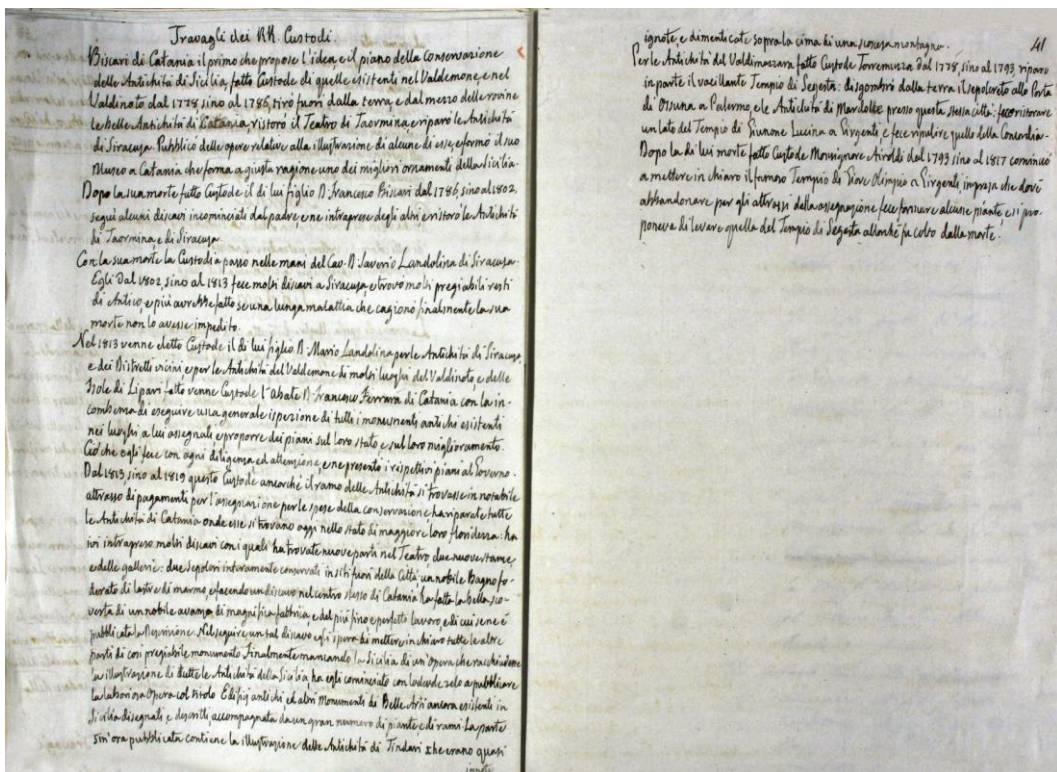 Travagli dei RR. Custodi.
Biscari di Catania il primo che propose l'idea, e il piano della Conservazione
delle Antichità di Sicilia, fatto Custode di quelle esistenti nel Valdemone, e nel
Valdinoto dal 1778 sino al 1786, tirò fuori dalla terra, e dal mezzo delle rovine
le belle Antichità di Catania, ristorò il Teatro di Taormina, e riparò le Antichità
di Siracusa. Pubblicò delle opere relative alla illustrazione di alcune di esse, e formò il suo
Museo a Catania che forma a giusta ragione uno dei migliori ornamenti della Sicilia.
Dopo la sua morte fatto Custode il di lui figlio D. Francesco Biscari dal 1786, sino al 1802,
seguì alcuni discavi incominciati dal padre, e ne intraprese degli altri e ristorò le Antichità
di Taormina, e di Siracusa.
Con la sua morte la Custodia passò nelle mani del Cav. D. Saverio Landolina di Siracusa.
Egli dal 1802, sino al 1813 fece molti discavi a Siracusa, e trovò molti pregiabili resti
di Antico, e più avrebbe fatto se una lunga malattia che cagionò finalmente la sua
morte non lo avesse impedito.
Nel 1813 venne eletto Custode il di lui figlio D. Mario Landolina per le Antichità di Siracusa,
e dei Distretti vicini, e per le Antichità del Valdemone di molti luoghi del Valdinoto e delle
Isole di Lipari fatto venne Custode l'Abate D. Francesco Ferrara di Catania con la in-
combenza di eseguire una generale ispezione di tutti i monumenti antichi esistenti
nei luoghi a lui assegnati e proporre dei piani sul loro stato e sul loro miglioramento.
Ciò che egli fece con ogni diligenza ed attenzione e ne presentò i rispettivi piani al Governo.
Dal 1813 sino al 1819 questo Custode ancorchè il ramo delle Antichità si trovasse in notabile
attrasso di pagamenti per l'assegnazione per le spese della conservazione ha riparate tutte
le Antichità di Catania onde esse si trovano oggi nello stato di maggiore loro floridezza: ha
ivi intrapreso molti discavi con i quali ha trovate nuove parti nel Teatro, due nuove stanze,
e delle gallerie: due sepolcri interamente conservati in siti fuori della Città, un nobile Bagno fo-
derato di lastre di marmo, e facendo un discavo nel centro stesso di Catania ha fatta la bella sco-
verta di un nobile avanzo di magnifica fabbrica, e del più fino e perfetto lavoro, e di cui se ne è
pubblicata la Descrizione. Nel seguire un tal discavo egli spera di mettere in chiaro tutte le altre
parti di così pregiabile monumento. Finalmente mancando la Sicilia di un'opera che racchiudesse
la illustrazione di tutte le Antichità della Sicilia, ha egli cominciato con lodevole zelo a pubblicare
la laboriosa Opera col titolo Edifizj antichi ed altri Monumenti di Belle Arti ancora esistenti in
Sicilia disegnati, e descritti accompagnata da un gran numero di piante, e di rami. La parte
sin'ora pubblicata contiene la illustrazione delle Antichità di Tindari che erano quasi
ignote
41
ignote, e dimenticate sopra la cima di una scoscesa montagna.
Per le Antichità del Valdimazzara fatto Custode Torremuzza dal 1778, sino al 1793, riparò
in parte il vacillante Tempio di Segesta: disgombrò dalla terra il sepolcreto alla Porta
di Ossuna a Palermo, e le Antichità di Mardolce presso questa stessa città: fece ristorare
un lato del Tempio di Giunone Lucina a Girgenti e fece ripulire quello della Concordia.
Dopo la di lui morte fatto Custode Monsignore Airoldi dal 1793 sino al 1817 cominciò
a mettere in chiaro il famoso Tempio di Giove Olimpio a Girgenti, impresa che dovè
abbandonare per gli attrassi della assegnazione fece formare alcune piante, e si pro-
poneva di levare quella del Tempio di Segesta allorchè fu colto dalla morte.